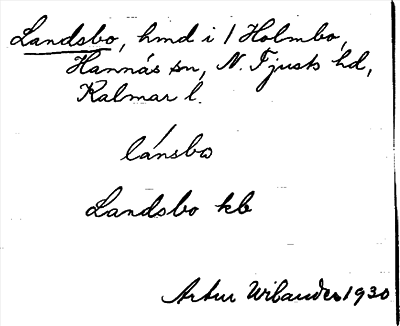 Landsbo, hmd i 1 Holmbo,
Hannäs sn, N. Tjusts hd,
Kalmar l.
lánsbo
Landsbo kb
Artur Wilander 1930